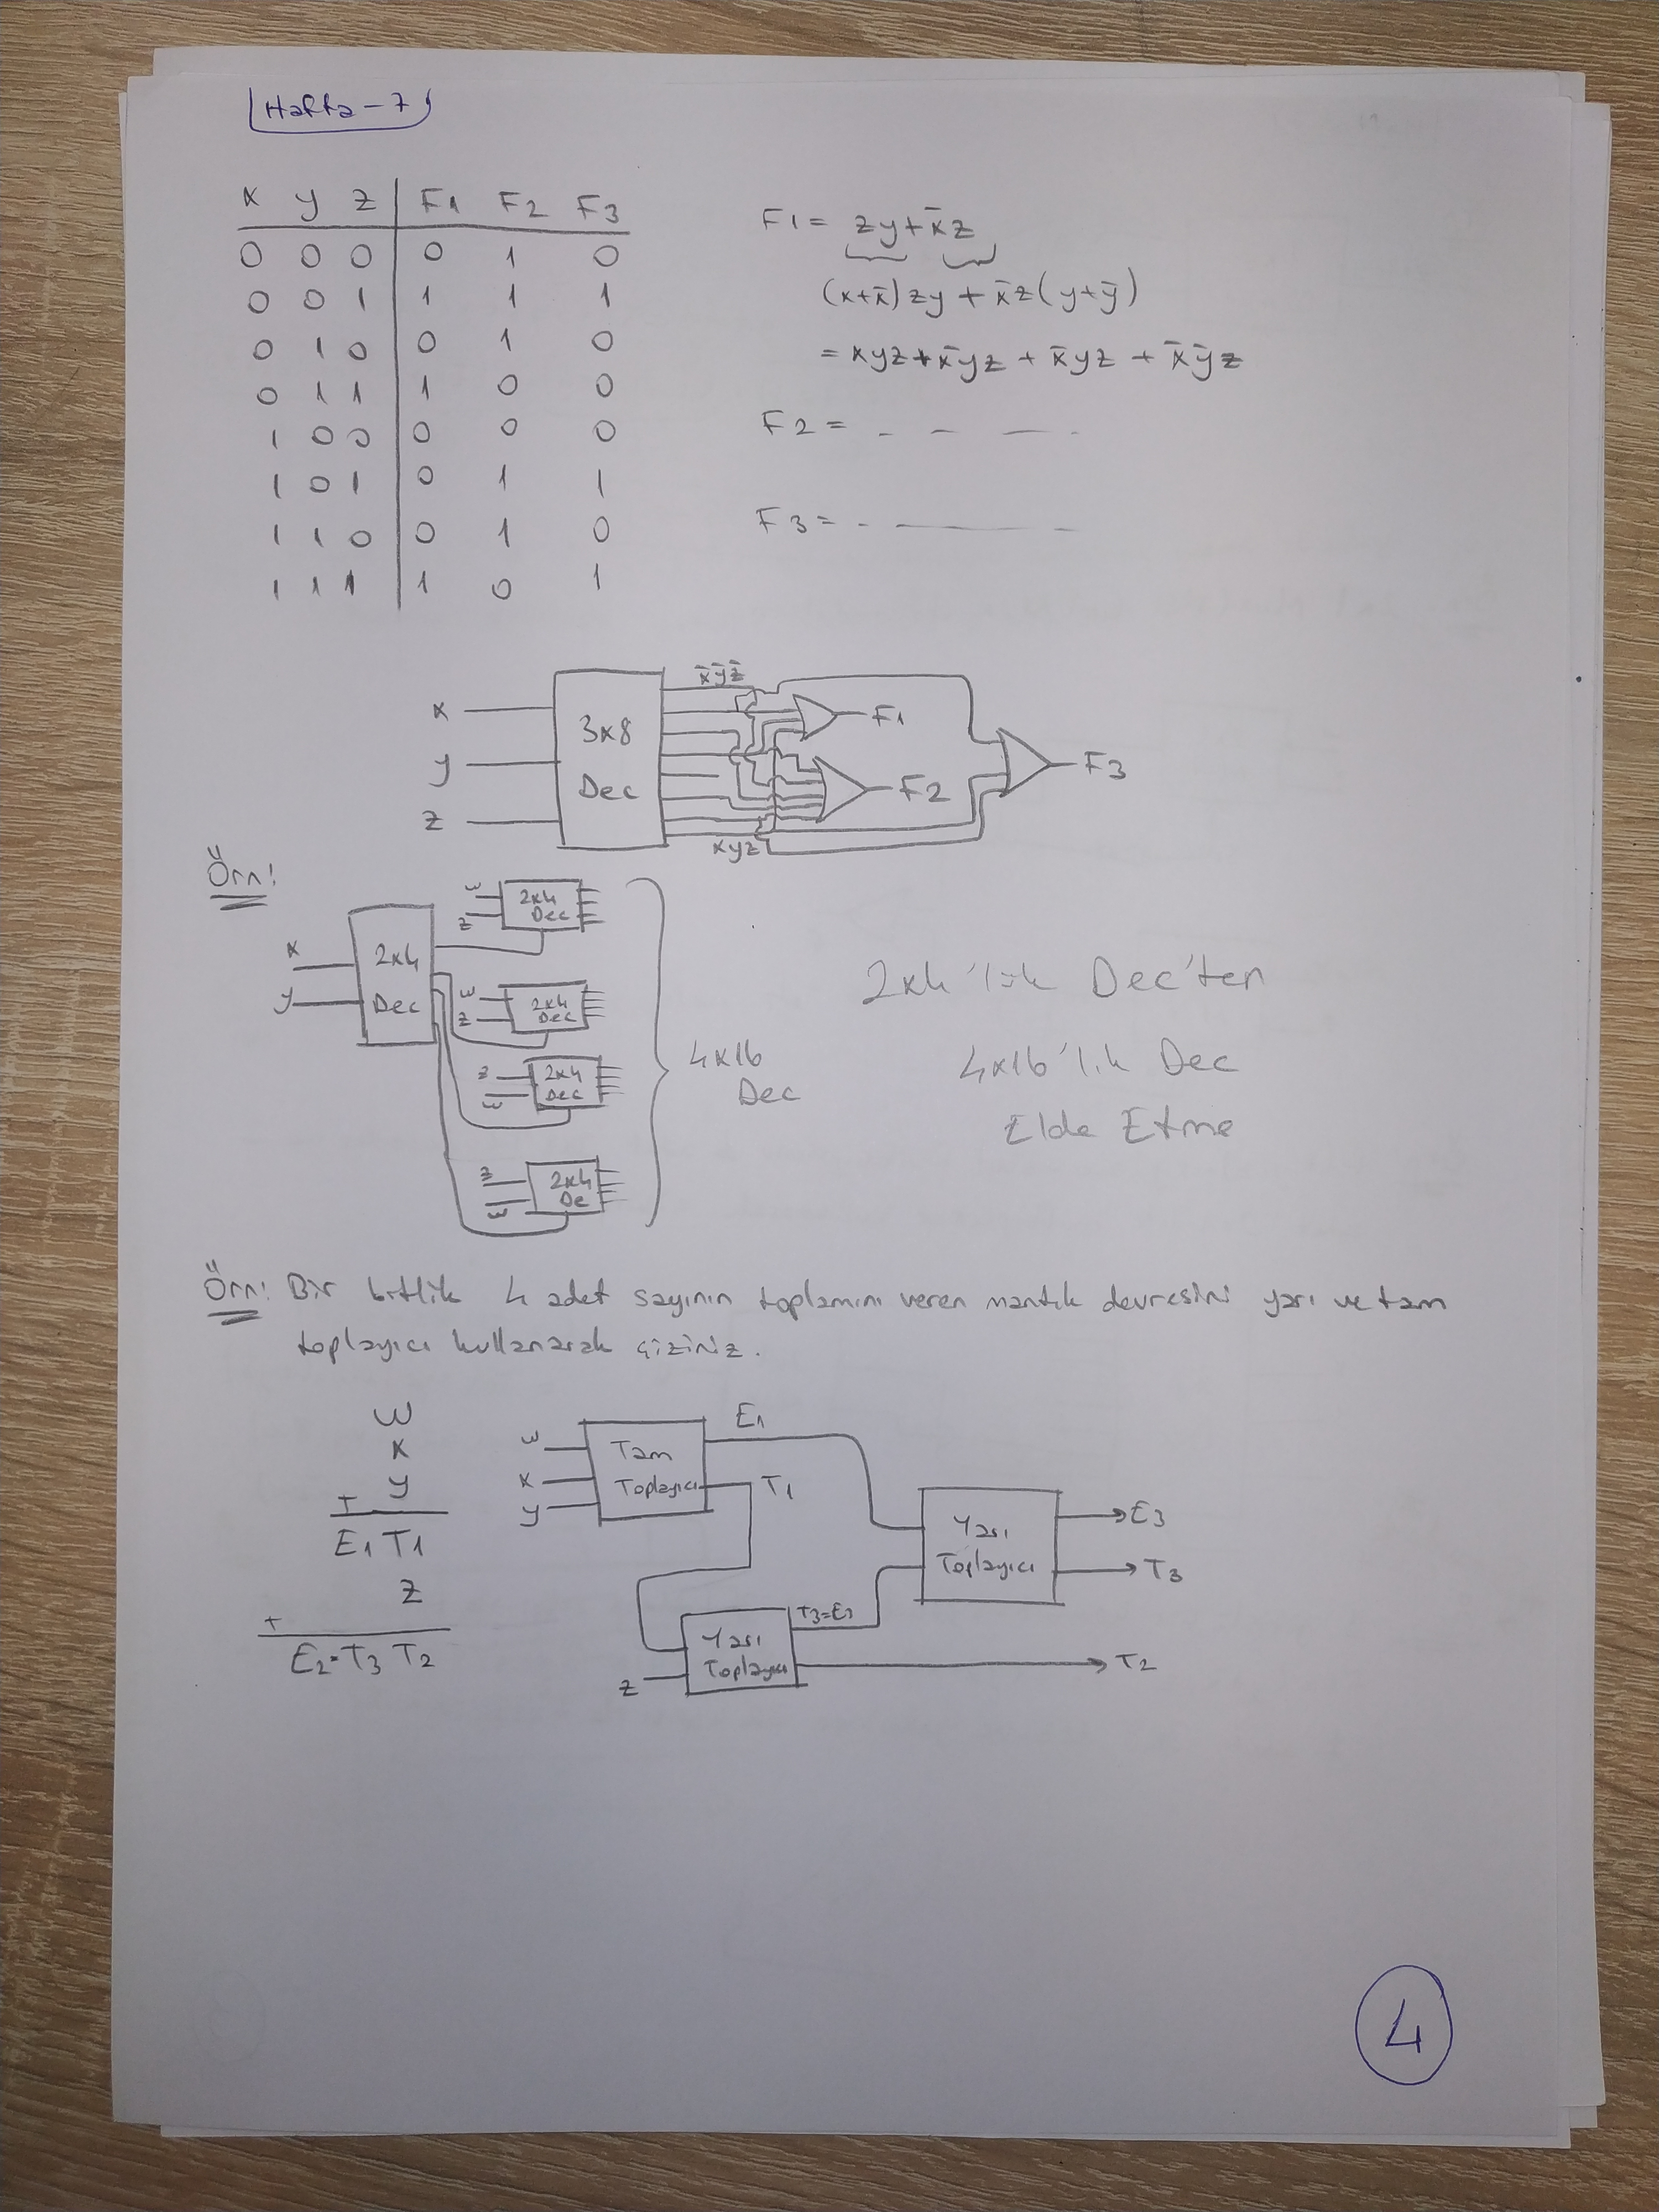 Hafta-7
x y z F1 F2 F3
0 0 0 0 1 0
0 0 1 1 1 1
0 1 0 0 1 0
0 1 1 1 0 0
1 0 0 0 0 0
1 0 1 0 1 1
1 1 0 0 1 0
1 1 1 1 0 1
F1 = zy + x̄z
(x+x̄)zy + x̄z(y+ȳ)
= xyz + x̄yz + x̄yz + x̄ȳz
F2 =
F3 =
x
y
z
3x8
Dec
x̄ȳz̄
xyz
F1
F2
F3
Örn!
x
y
2x4
Dec
w
z
2x4
Dec
w
z
2x4
Dec
z
w
2x4
Dec
z
w
2x4
De
4x16
Dec
2x4'lük Dec'ten
4x16'lık Dec
Elde Etme
Örn! Bir bitlik 4 adet sayının toplamını veren mantık devresini yarı ve tam
toplayıcı kullanarak çiziniz.
w
x
y
+
E1 T1
z
+
E2=T3 T2
w
x
y
Tam
Toplayıcı
E1
T1
z
Yarı
Toplayıcı
Yarı
Toplayıcı
E3
T3
T2
4